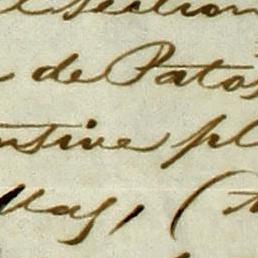 section
de Patos
nsive pl
llas, (